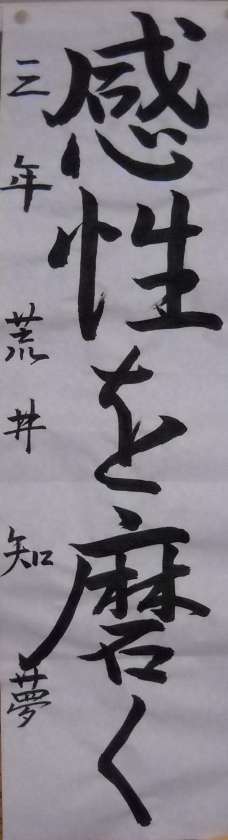 感性を磨く
三年 荒井知夢